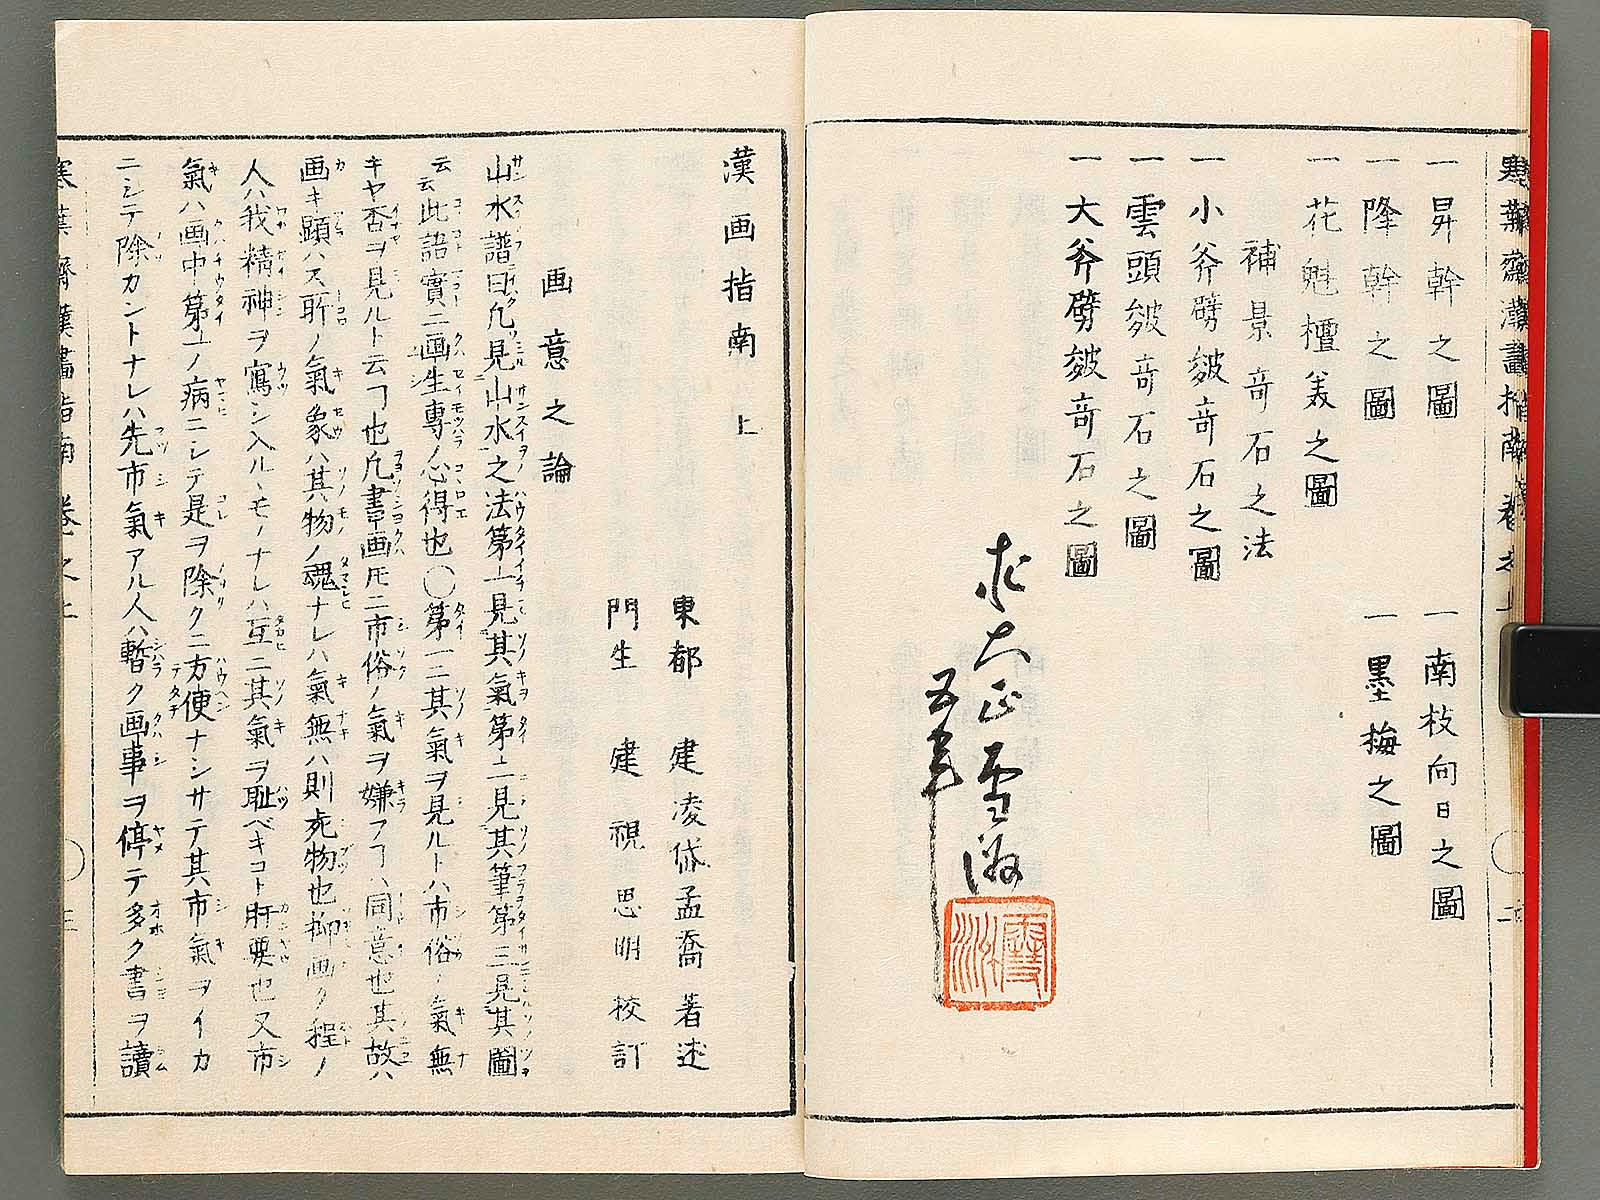 一昇幹之圖
一南枝向日之圖
一降幹之圖
一墨梅之圖
一花魁檀美之圖
補景奇石之法
一小斧劈皴奇石之圖
一雲頭皴奇石之圖
一大斧劈皴奇石之圖
漢画指南上
東都 建凌岱孟喬著述
門生 建視思明校訂
画意之論
山水譜曰凢見山水之法第一見其氣第二見其筆第三見其圖
云云此語實ニ画生専ノ心得也〇第一ニ其氣ヲ見ルトハ市俗ノ氣無
キヤ否ヲ見ルト云フ也凢書画𪜈ニ市俗ノ氣ヲ嫌フヿハ同意也其故ハ
画キ顕ハス所ノ氣象ハ其物ノ魂ナレハ氣無ハ則死物也抑画ク程ノ
人ハ我精神ヲ寫シ入ルヽモノナレハ互ニ其氣ヲ耻ベキコト肝要也又市
氣ハ画中第一ノ病ニシテ是ヲ除クニ方便ナシサテ其市氣ヲイカ
ニシテ除カントナレハ先市氣アル人ハ暫ク画事ヲ停テ多ク書ヲ讀
寒葉齋漢畫指南卷之上
三